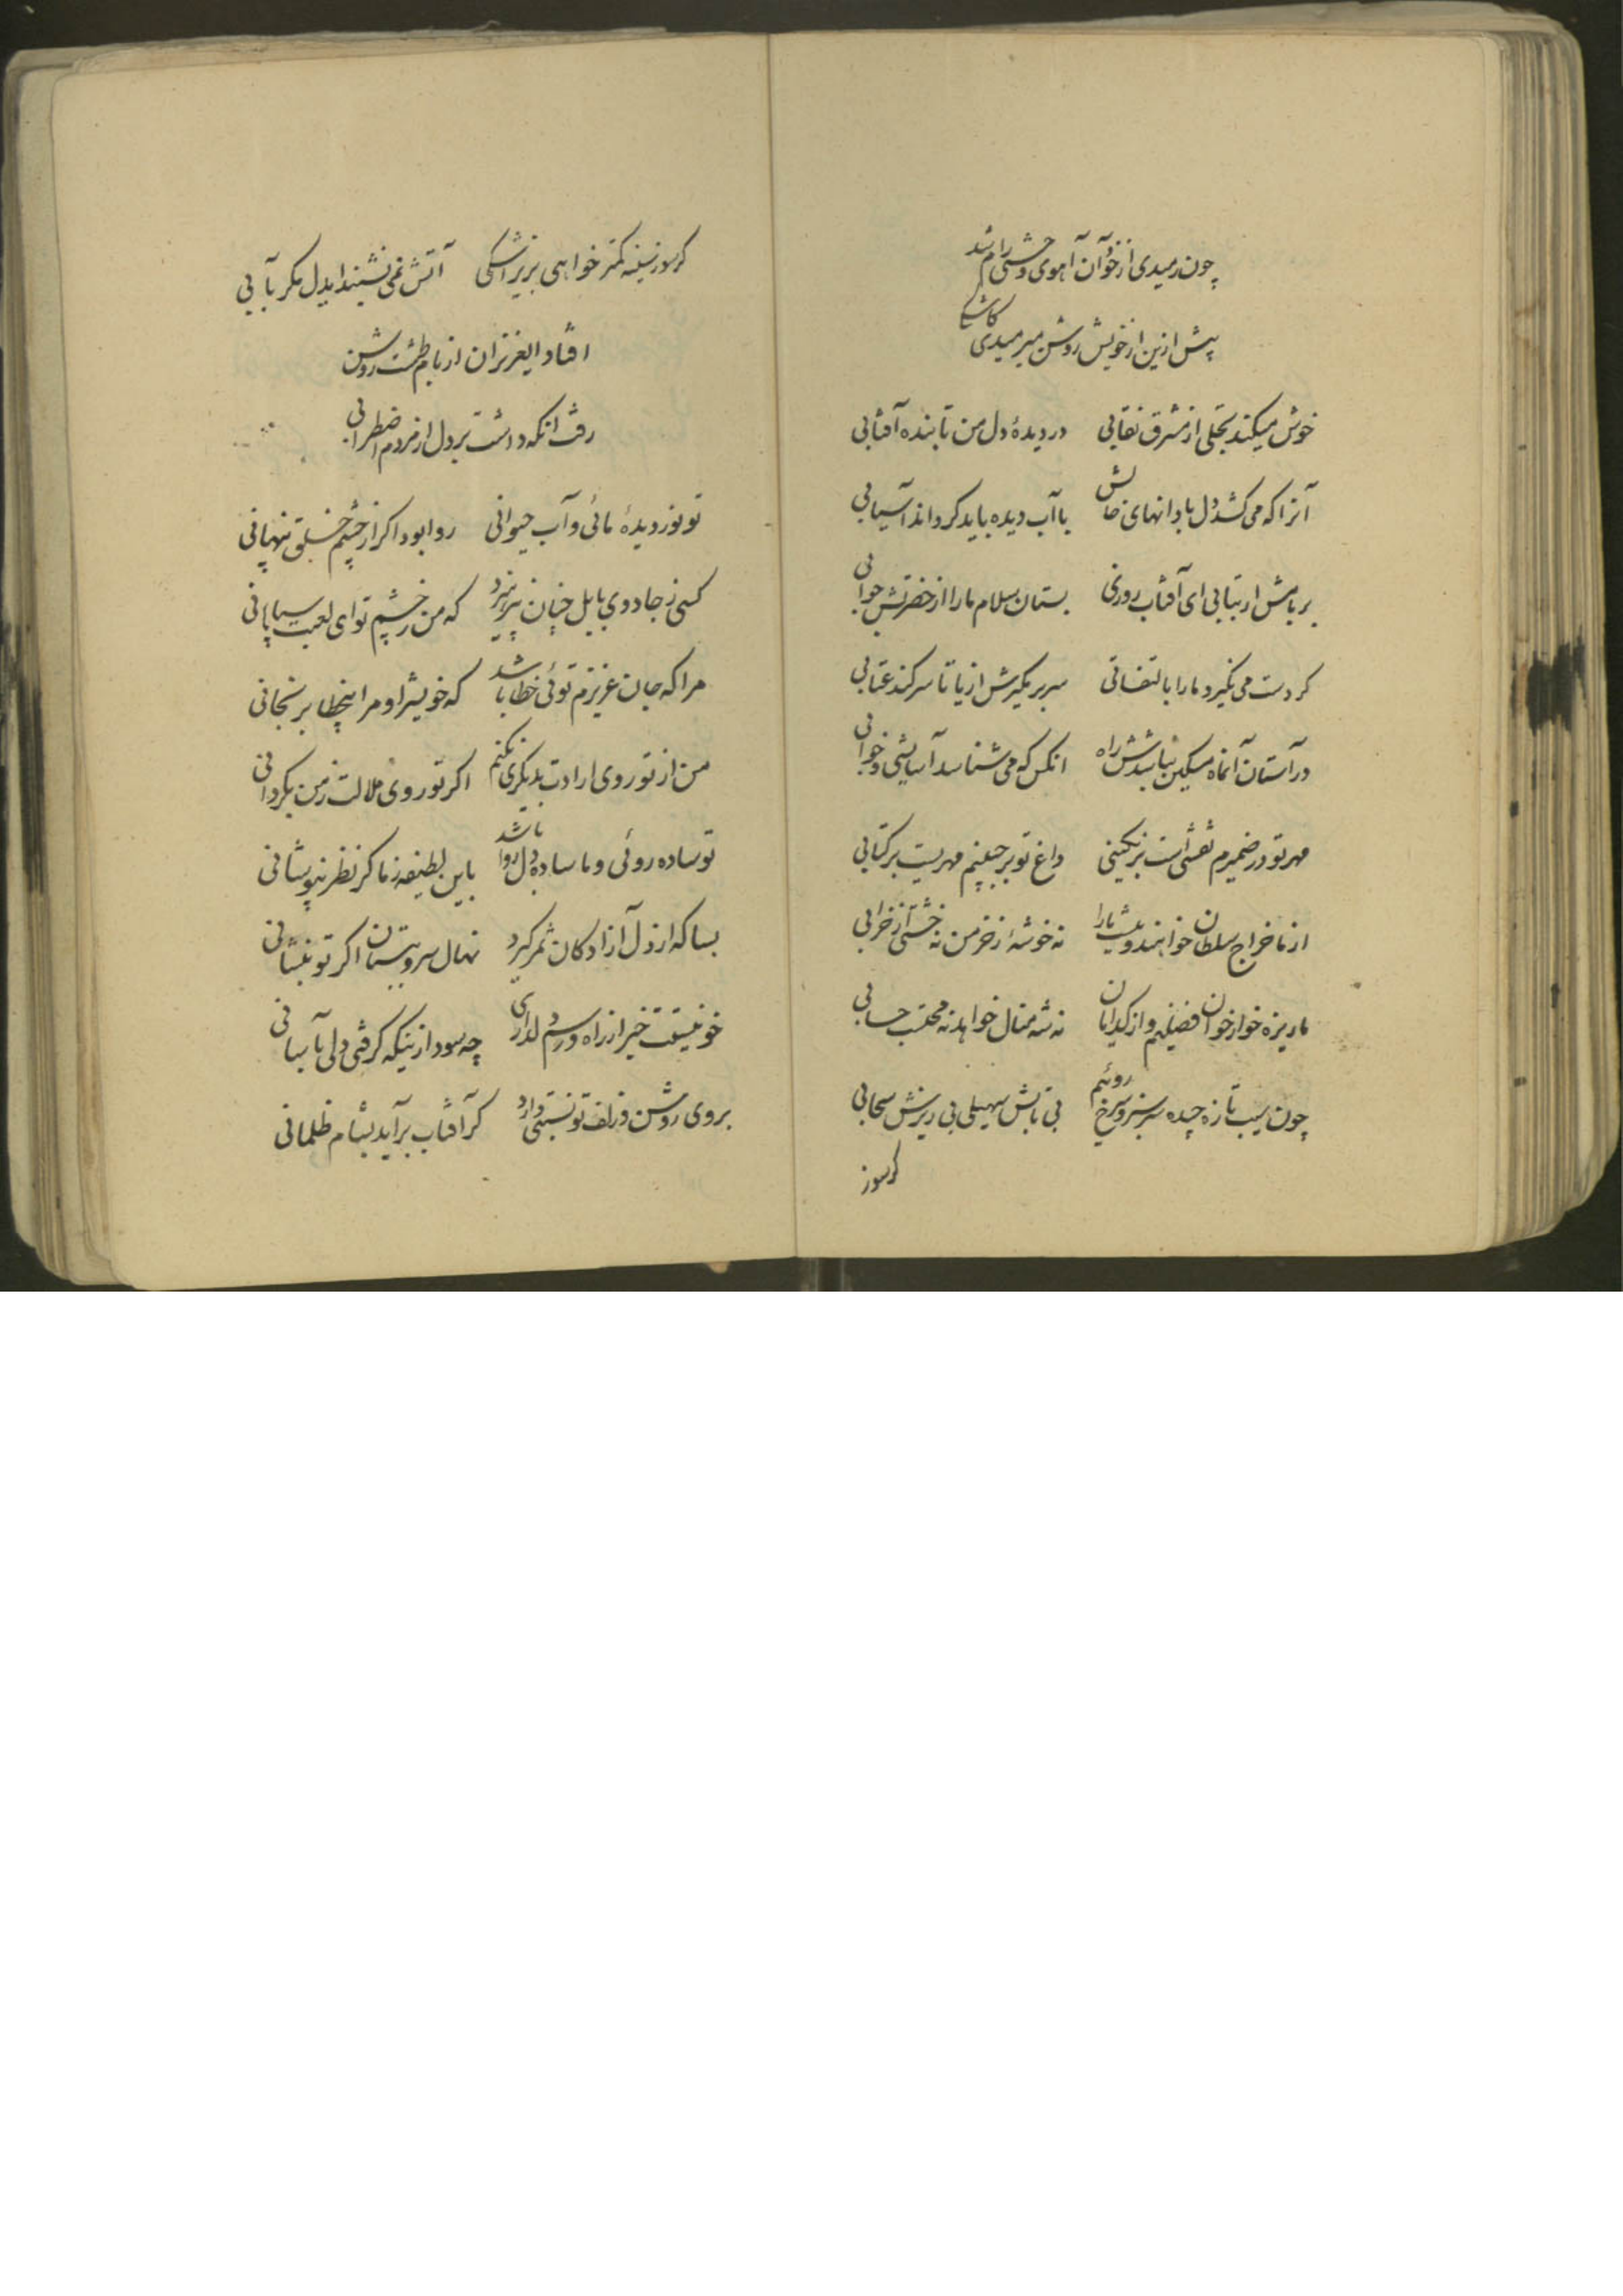 چون رمیدی از خود آن آهوی وحشی رام شد
پیش ازین از خویش روشن میرمیدی کاشکی
خوش میکند تجلی از مشرق نقابی در دیدهٔ دل من تابنده آفتابی
آنرا که می کشد دل با دانهای خالش با آب دیده باید گرداند آسیابی
بر بامش ار بتابی ای آفتاب روزی بستان سلام ما را از حضرتش جوابی
گر دست می نگیرد ما را بالتفاتی سر بر نگیرش از پا تا سر کند عتابی
در آستان آنماه مسکین نباشدش راه انکس که می شناسد آسایشی و خوابی
مهر تو در ضمیرم نقشی است بر نگینی داغ تو بر جبینم مهریست بر کتابی
از ما خراج سلطان خواهند و نیست ما را نه خوشهٔ ز خرمن نه خشتی از خرابی
ما ریزه خوار خوان فضلیم و از گدایان نه شه منال خواهد نه محتسب حسابی
چون سیب تازه چیده سر سبز و سرخ روئیم بی تابش سهیلی بی ریزش سحابی
گر سوز
گر سوز سینه کمتر خواهی بریز اشکی آتش نمی نشیند ایدل مگر بآبی
افتاد ایعزیزان از بام طشت روشن
رفت انکه داشت بر دل از مردم اضطرابی
تو نور دیدهٔ مائی و آب حیوانی روا بود اگر از چشم خلق پنهانی
کسی ز جادوی بابل چنان نپرهیزد که من ز چشم تو ای لعبت سپاهانی
مرا که جان عزیزم توئی خطا باشد که خویش را و مرا بیخطا برنجانی
من از تو روی ارادت بدیگری نکنم اگر تو روی ملالت ز من بگردانی
تو ساده روئی و ما ساده دل روا باشد باین لطیفه ز ما گر نظر نپوشانی
بسا که از دل آزادگان ثمر گیرد نهال سرو ببستان اگر تو بنشانی
خود نیستت خبر از راه و رسم دلداری چه سود ازینکه گرفتی دلی بآسانی
بروی روشن و زلف تو نسبتی دارد گر آفتاب برآید بشام ظلمانی